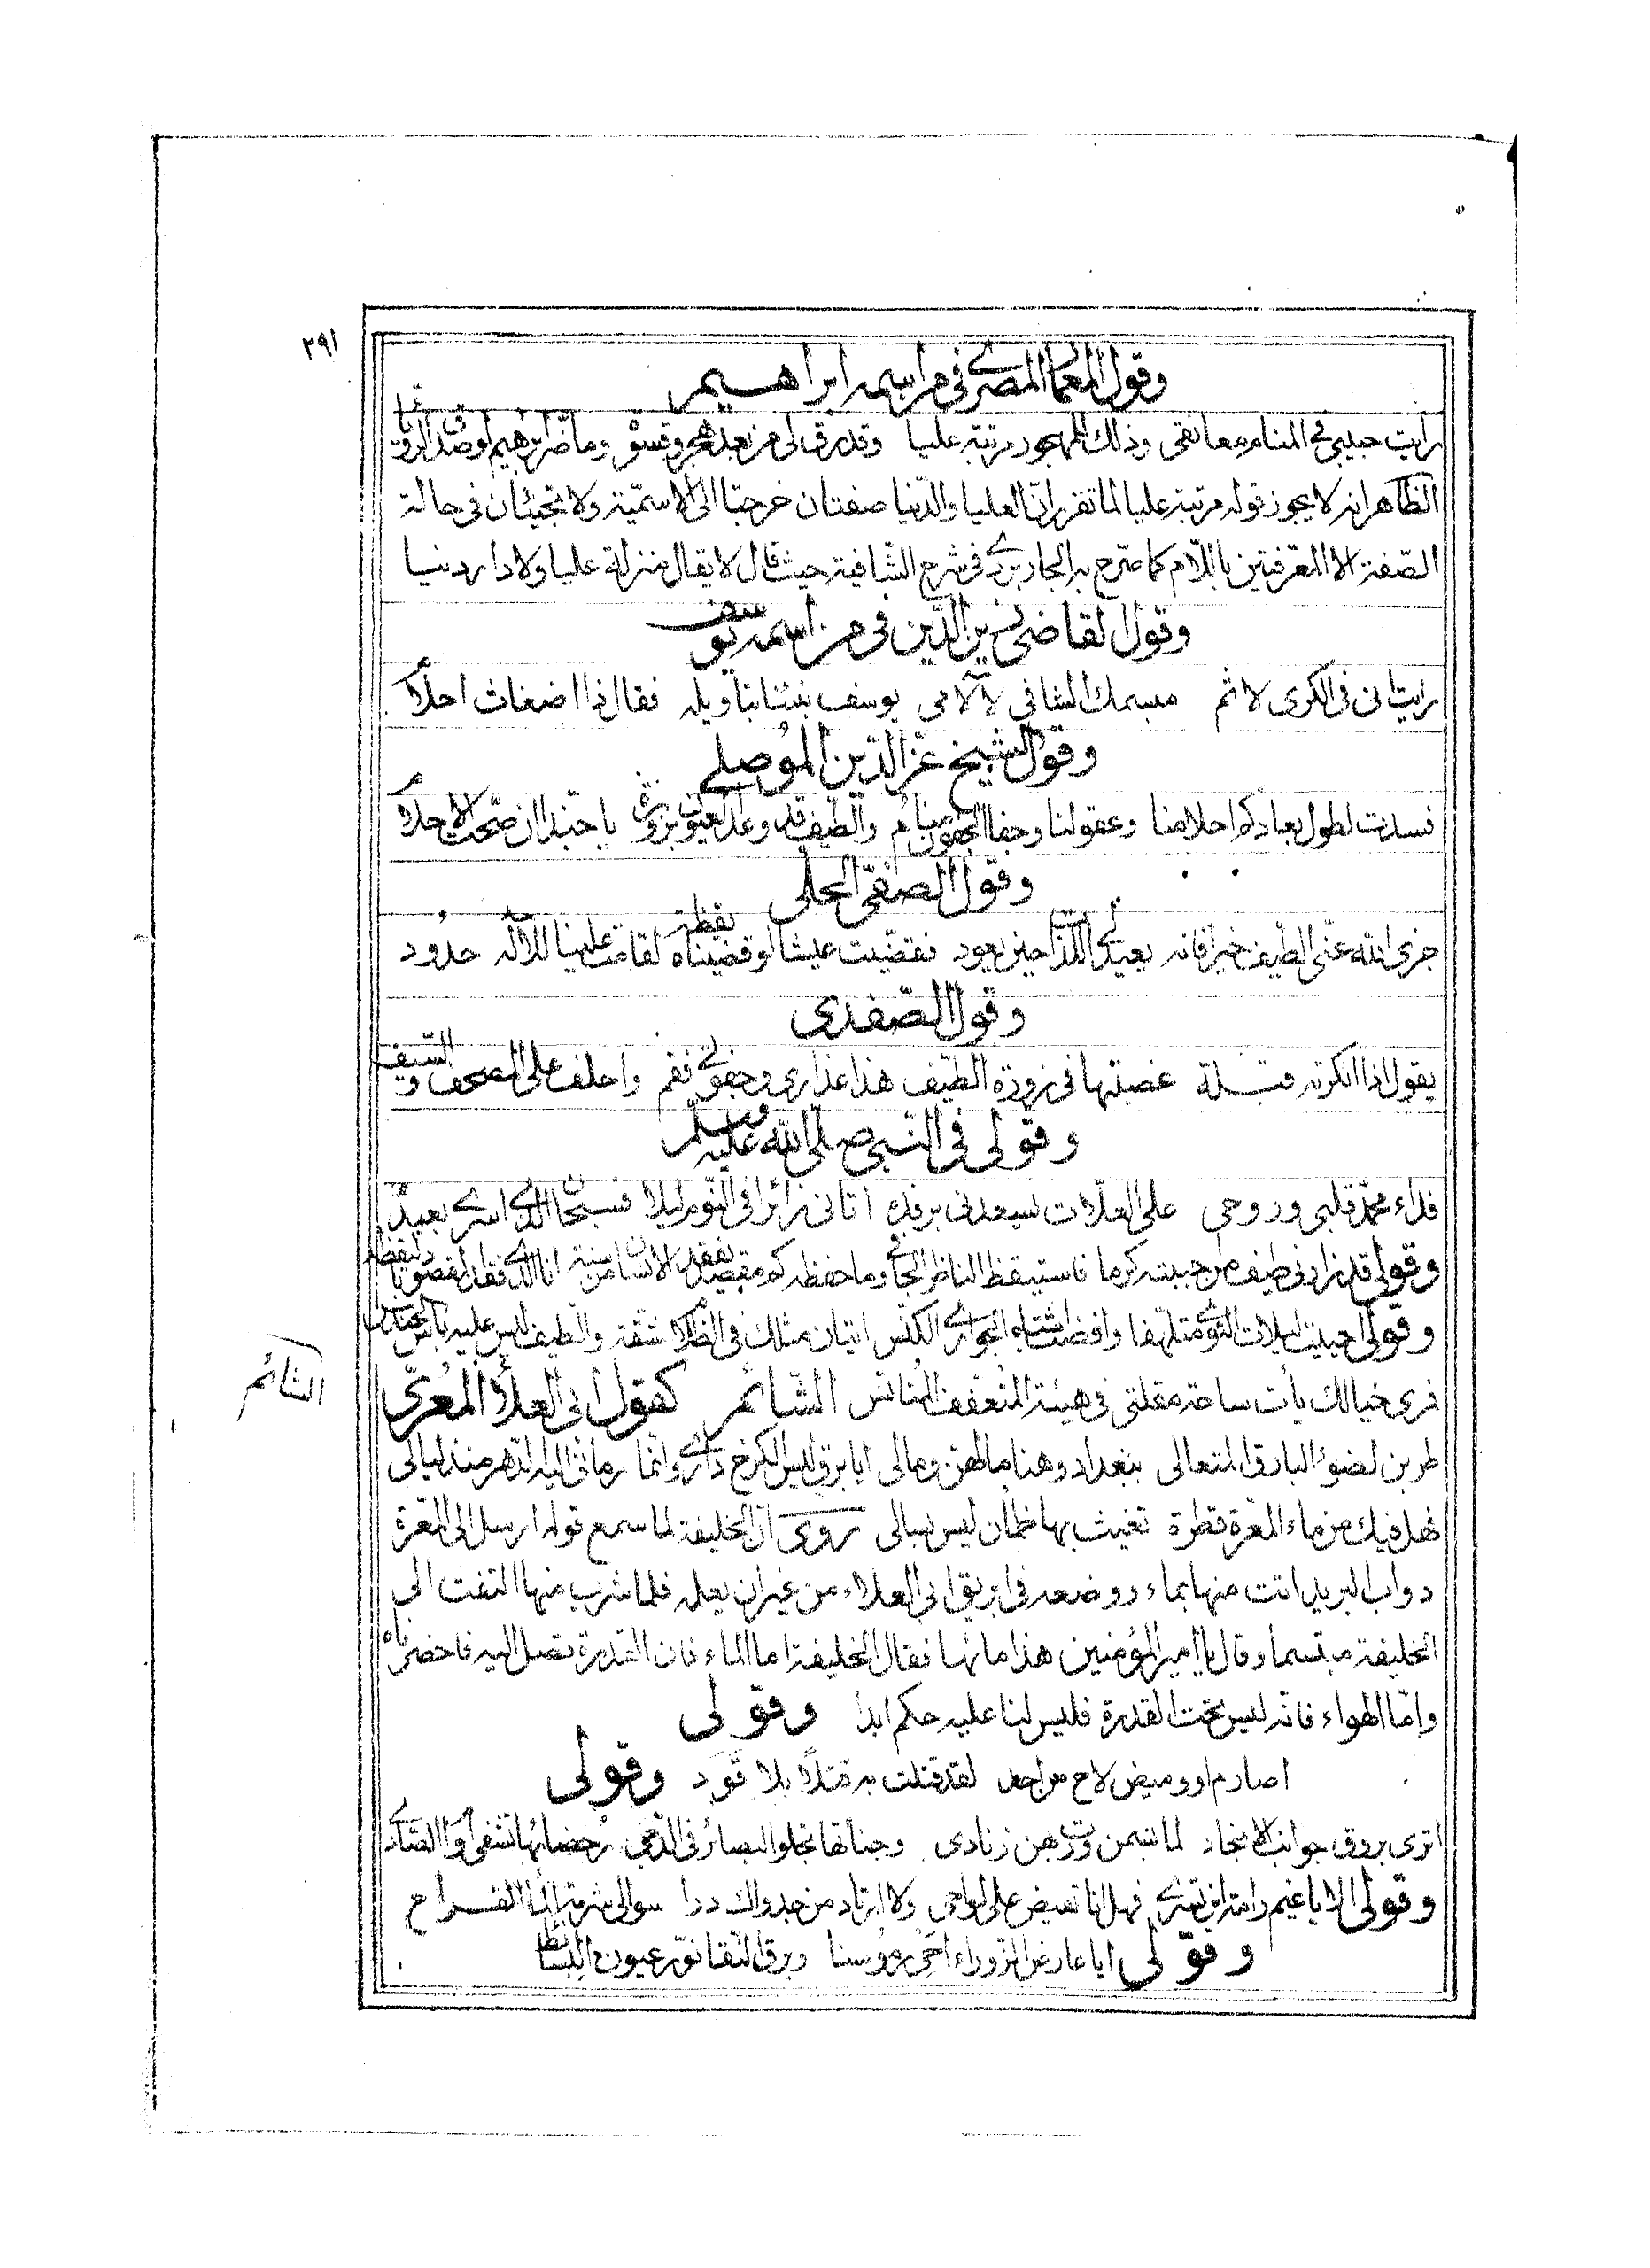 ٢٩١
وقول المعمار المصري في من اسمه ابراهيم
رايت حبيبي في المنام معانقي وذلك للمهجور مرتبة عليا وقد رق لي من بعد هجر وقسوة وما ضر ابرهيم لو صدق الرؤيا
الظاهر انه لا يجوز قوله مرتبة عليا لما تقرر ان العليا والدنيا صفتان خرجتا الى الاسمية ولا تجيئان في حالة
الصفة الا المعرفتين باللام كما صرح به الجاربردي في شرح الشافية حيث قال لا يقال منزلة عليا ولا دار دنيا
وقول القاضي زين الدين في من اسمه يوسف
رايتاني في الكرى لاثم مبسمك الشافي لآلامي يوسف نبئنا بتاويله فقال ذا اضغاث احلام
وقول الشيخ عز الدين الموصلي
فسدت لطول بعادكم احلامنا وعقولنا وجفا الجفون منام والطيف قد وعد العيون بزورة يا حبذا ان صحت الاحلام
وقول الصفي الحلي
جزى الله عني الطيف خيرا فانه يعيد لي اللذات حين يعود فقضيت عيشا لو قضيناه يقظة لقامت علينا للاله حدود
وقول الصفدي
يقول اذا انكرته قبلة غصبتها في زورة الطيف هذا عذاري وجفوني فقم واحلف على المصحف والسيف
وقولي في النبي صلى الله عليه وسلم
فداء محمد قلبي وروحي على العلات يسعدني برفده اتاني زائرا في النوم ليلا فسبحان الذي اسرى بعبده
وقولي قد زارني طيف من حبيته كرما فاستيقظ الناظر الجافي وما حفظه كم مقصد يفقد الانسان من سنة انا الذي فقد المقصود باليقظه
وقولي احييت ليلات النوى متلهفا اتيان مثلك في الظلام شقة والطيف ليس عليه باس
فرى خيالك يأت ساحة مقلتي في هيئة المتعفف الشائم كقول ابي العلاء المعري
الشائم
طربن لضوء البارق المتعالي ببغداد وهنا ما لهن ومالي ايا برق ليس الكرخ داري وانما رماني اليه الدهر منذ ليالي
فهل فيك من ماء المعرة قطرة تغيث بها ظمان ليس بسالي روى ان الخليفة لما سمع قوله ارسل الى المعرة
دواب البريد اتت منها بماء ووضعه في ابريق ابي العلاء من غير ان يعلمه فلما شرب منها التفت الى
الخليفة مبتسما وقال يا امير المؤمنين هذا ماؤها فقال الخليفة اما الماء فان القدرة تصل اليه فاحضرناه
واما الهواء فانه ليس تحت القدرة فليس لنا عليه حكم ابدا وقولي
اصارم او وميض لاح من لقد قتلت به قتلا بلا قود وقولي
اترى بروق جوانب الانجاد لما تبسمن ورت بهن زنادي تجلو البصائر في الدجى
وقولي الا يا غيم رامة فهل انا تفيض على لواحي ولا ارتاد من جدواك ددا سوالي شربة الماء القراح
وقولي ايا عارض الزوراء وبرق النقا نور عيون